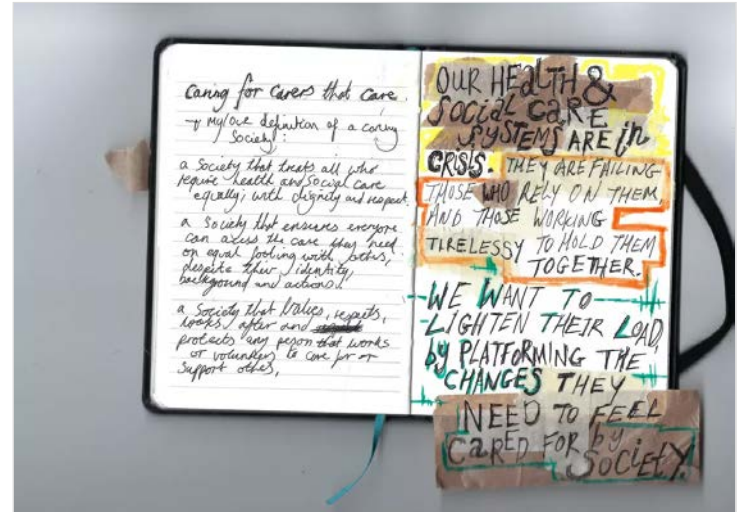 Caring for carers that care.
→ My/our definition of a caring
Society:
a Society that treats all who
require health and social care
equally; with dignity and respect.
a Society that ensures everyone
can access the care they need
on equal footing with others,
despite their identity,
background and actions.
a Society that values, respects,
looks after and
protects any person that works
or volunteers to care for or
support others,
OUR HEALTH &
SOCIAL CARE
SYSTEMS ARE in
CRISIS. THEY ARE FAILING
THOSE WHO RELY ON THEM,
AND THOSE WORKING
TIRELESSY TO HOLD THEM
TOGETHER.
WE WANT TO
LIGHTEN THEIR LOAD,
by PLATFORMING THE
CHANGES THEY
NEED TO FEEL
CARED FOR by
SOCIETY.